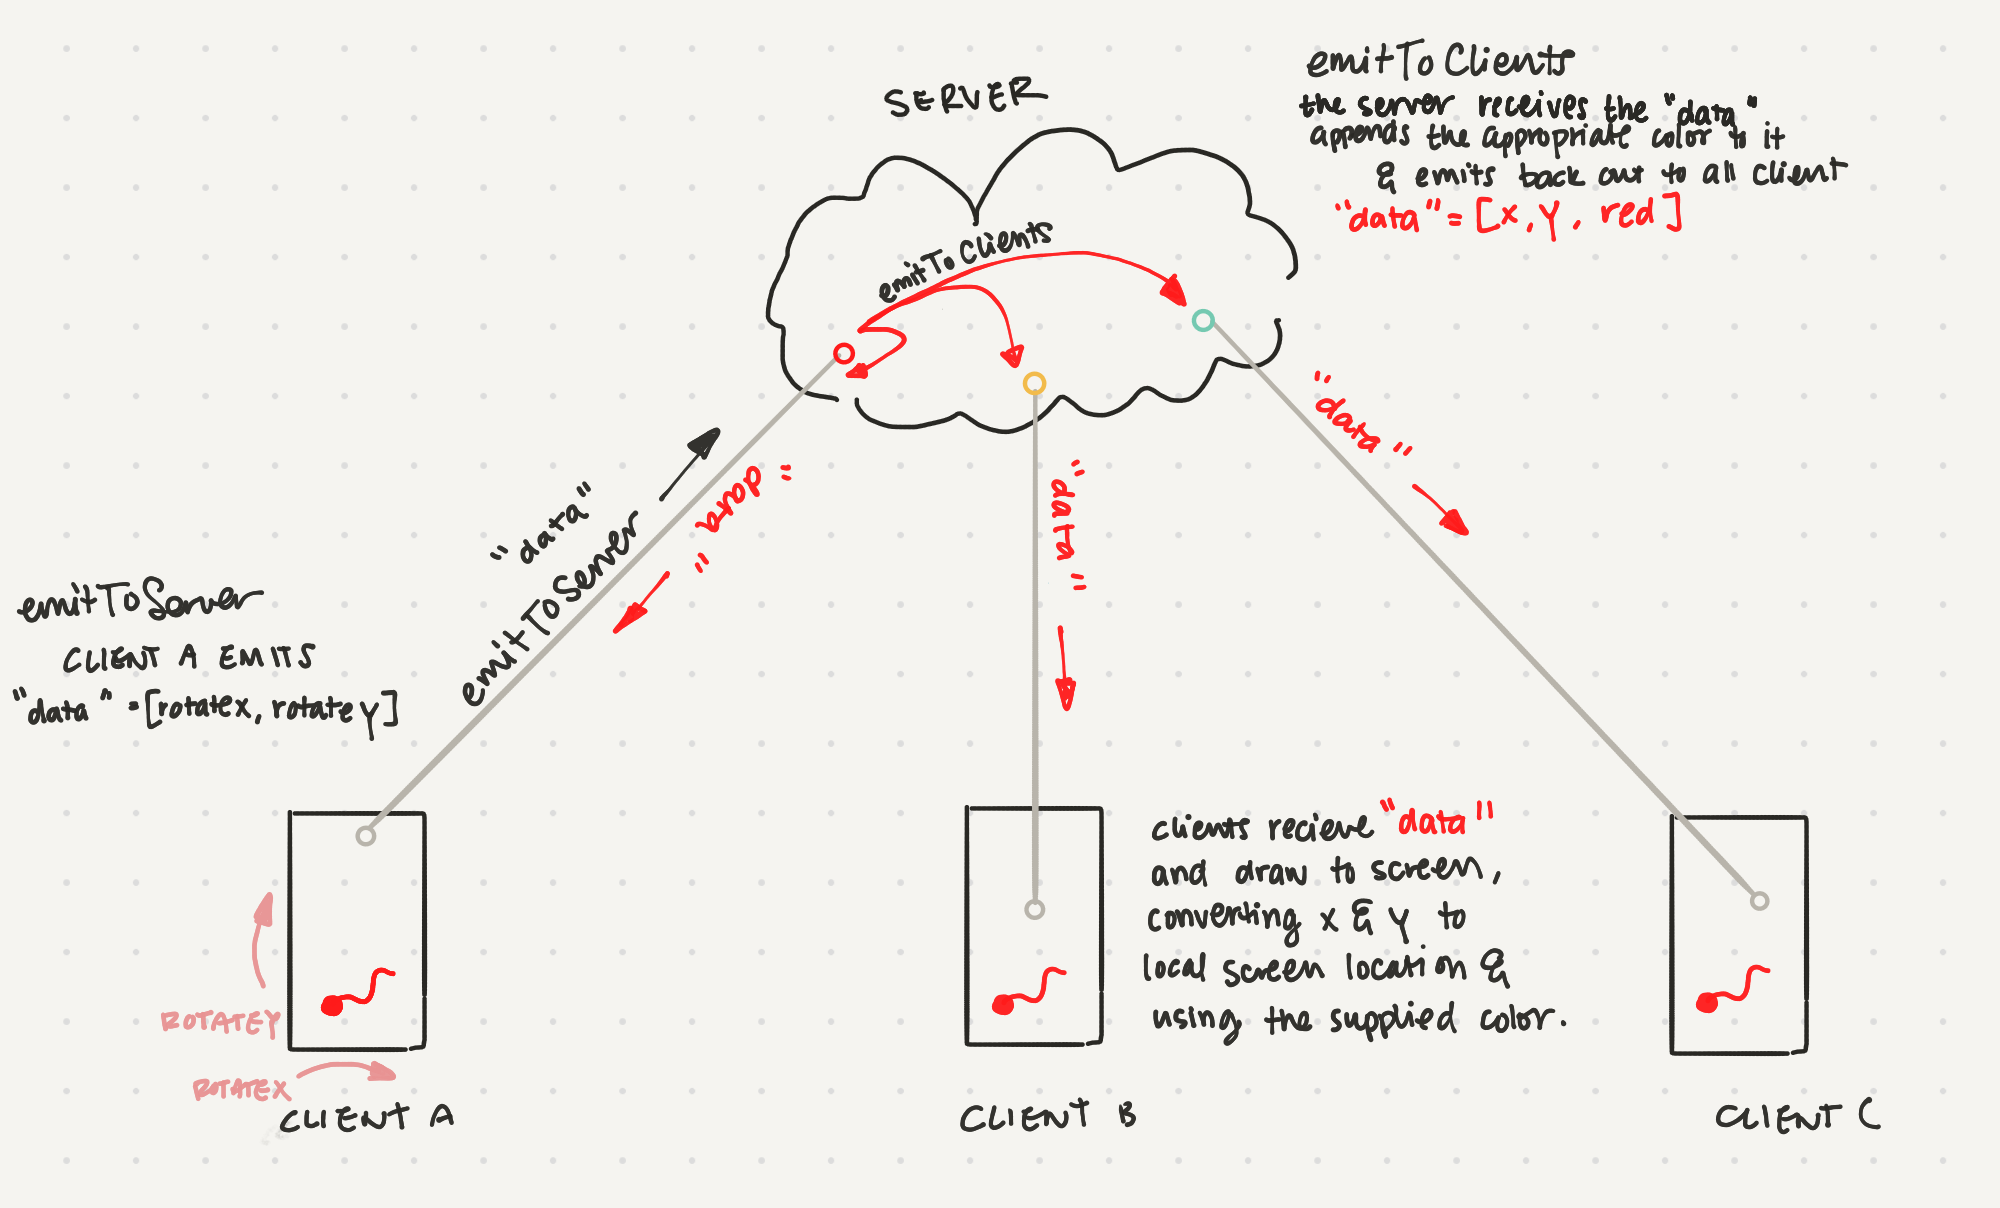 SERVER
emitToClients
the server receives the "data"
appends the appropriate color to it
& emits back out to all client
"data" = [x, y, red]
emitToClients
"data"
emitToServer
"data"
"data"
"data"
emitToServer
CLIENT A EMITS
"data" = [rotatex, rotatey]
clients recieve "data"
and draw to screen,
converting x & y to
local screen location &
using the supplied color.
ROTATEY
ROTATEX
CLIENT A
CLIENT B
CLIENT C